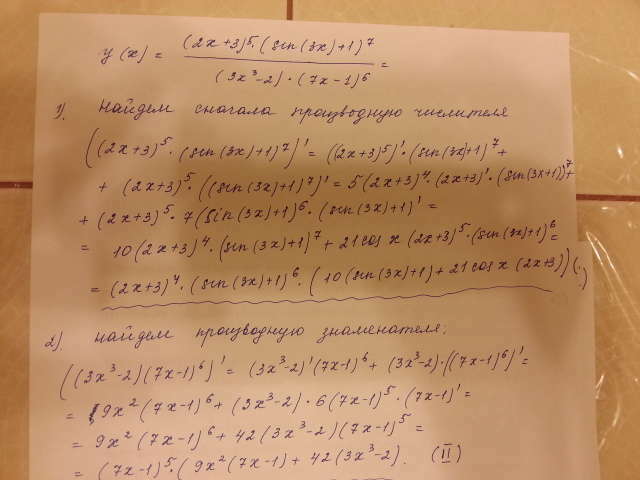 y(x) = (2x+3)⁵·(sin(3x)+1)⁷ / (3x³-2)·(7x-1)⁶ =
1). Найдем сначала производную числителя
((2x+3)⁵·(sin(3x)+1)⁷)' = ((2x+3)⁵)'·(sin(3x)+1)⁷ +
+ (2x+3)⁵·((sin(3x)+1)⁷)' = 5(2x+3)⁴·(2x+3)'·(sin(3x+1))⁷+
+ (2x+3)⁵·7(sin(3x)+1)⁶·(sin(3x)+1)' =
= 10(2x+3)⁴·(sin(3x)+1)⁷ + 21cos x (2x+3)⁵·(sin(3x)+1)⁶ =
= (2x+3)⁴·(sin(3x)+1)⁶·(10(sin(3x)+1)+21cos x (2x+3)) (.)
2). Найдем производную знаменателя:
((3x³-2)(7x-1)⁶)' = (3x³-2)'(7x-1)⁶ + (3x³-2)·((7x-1)⁶)' =
= 9x²(7x-1)⁶ + (3x³-2)·6(7x-1)⁵·(7x-1)' =
= 9x²(7x-1)⁶ + 42(3x³-2)(7x-1)⁵ =
= (7x-1)⁵·(9x²(7x-1) + 42(3x³-2). (II)